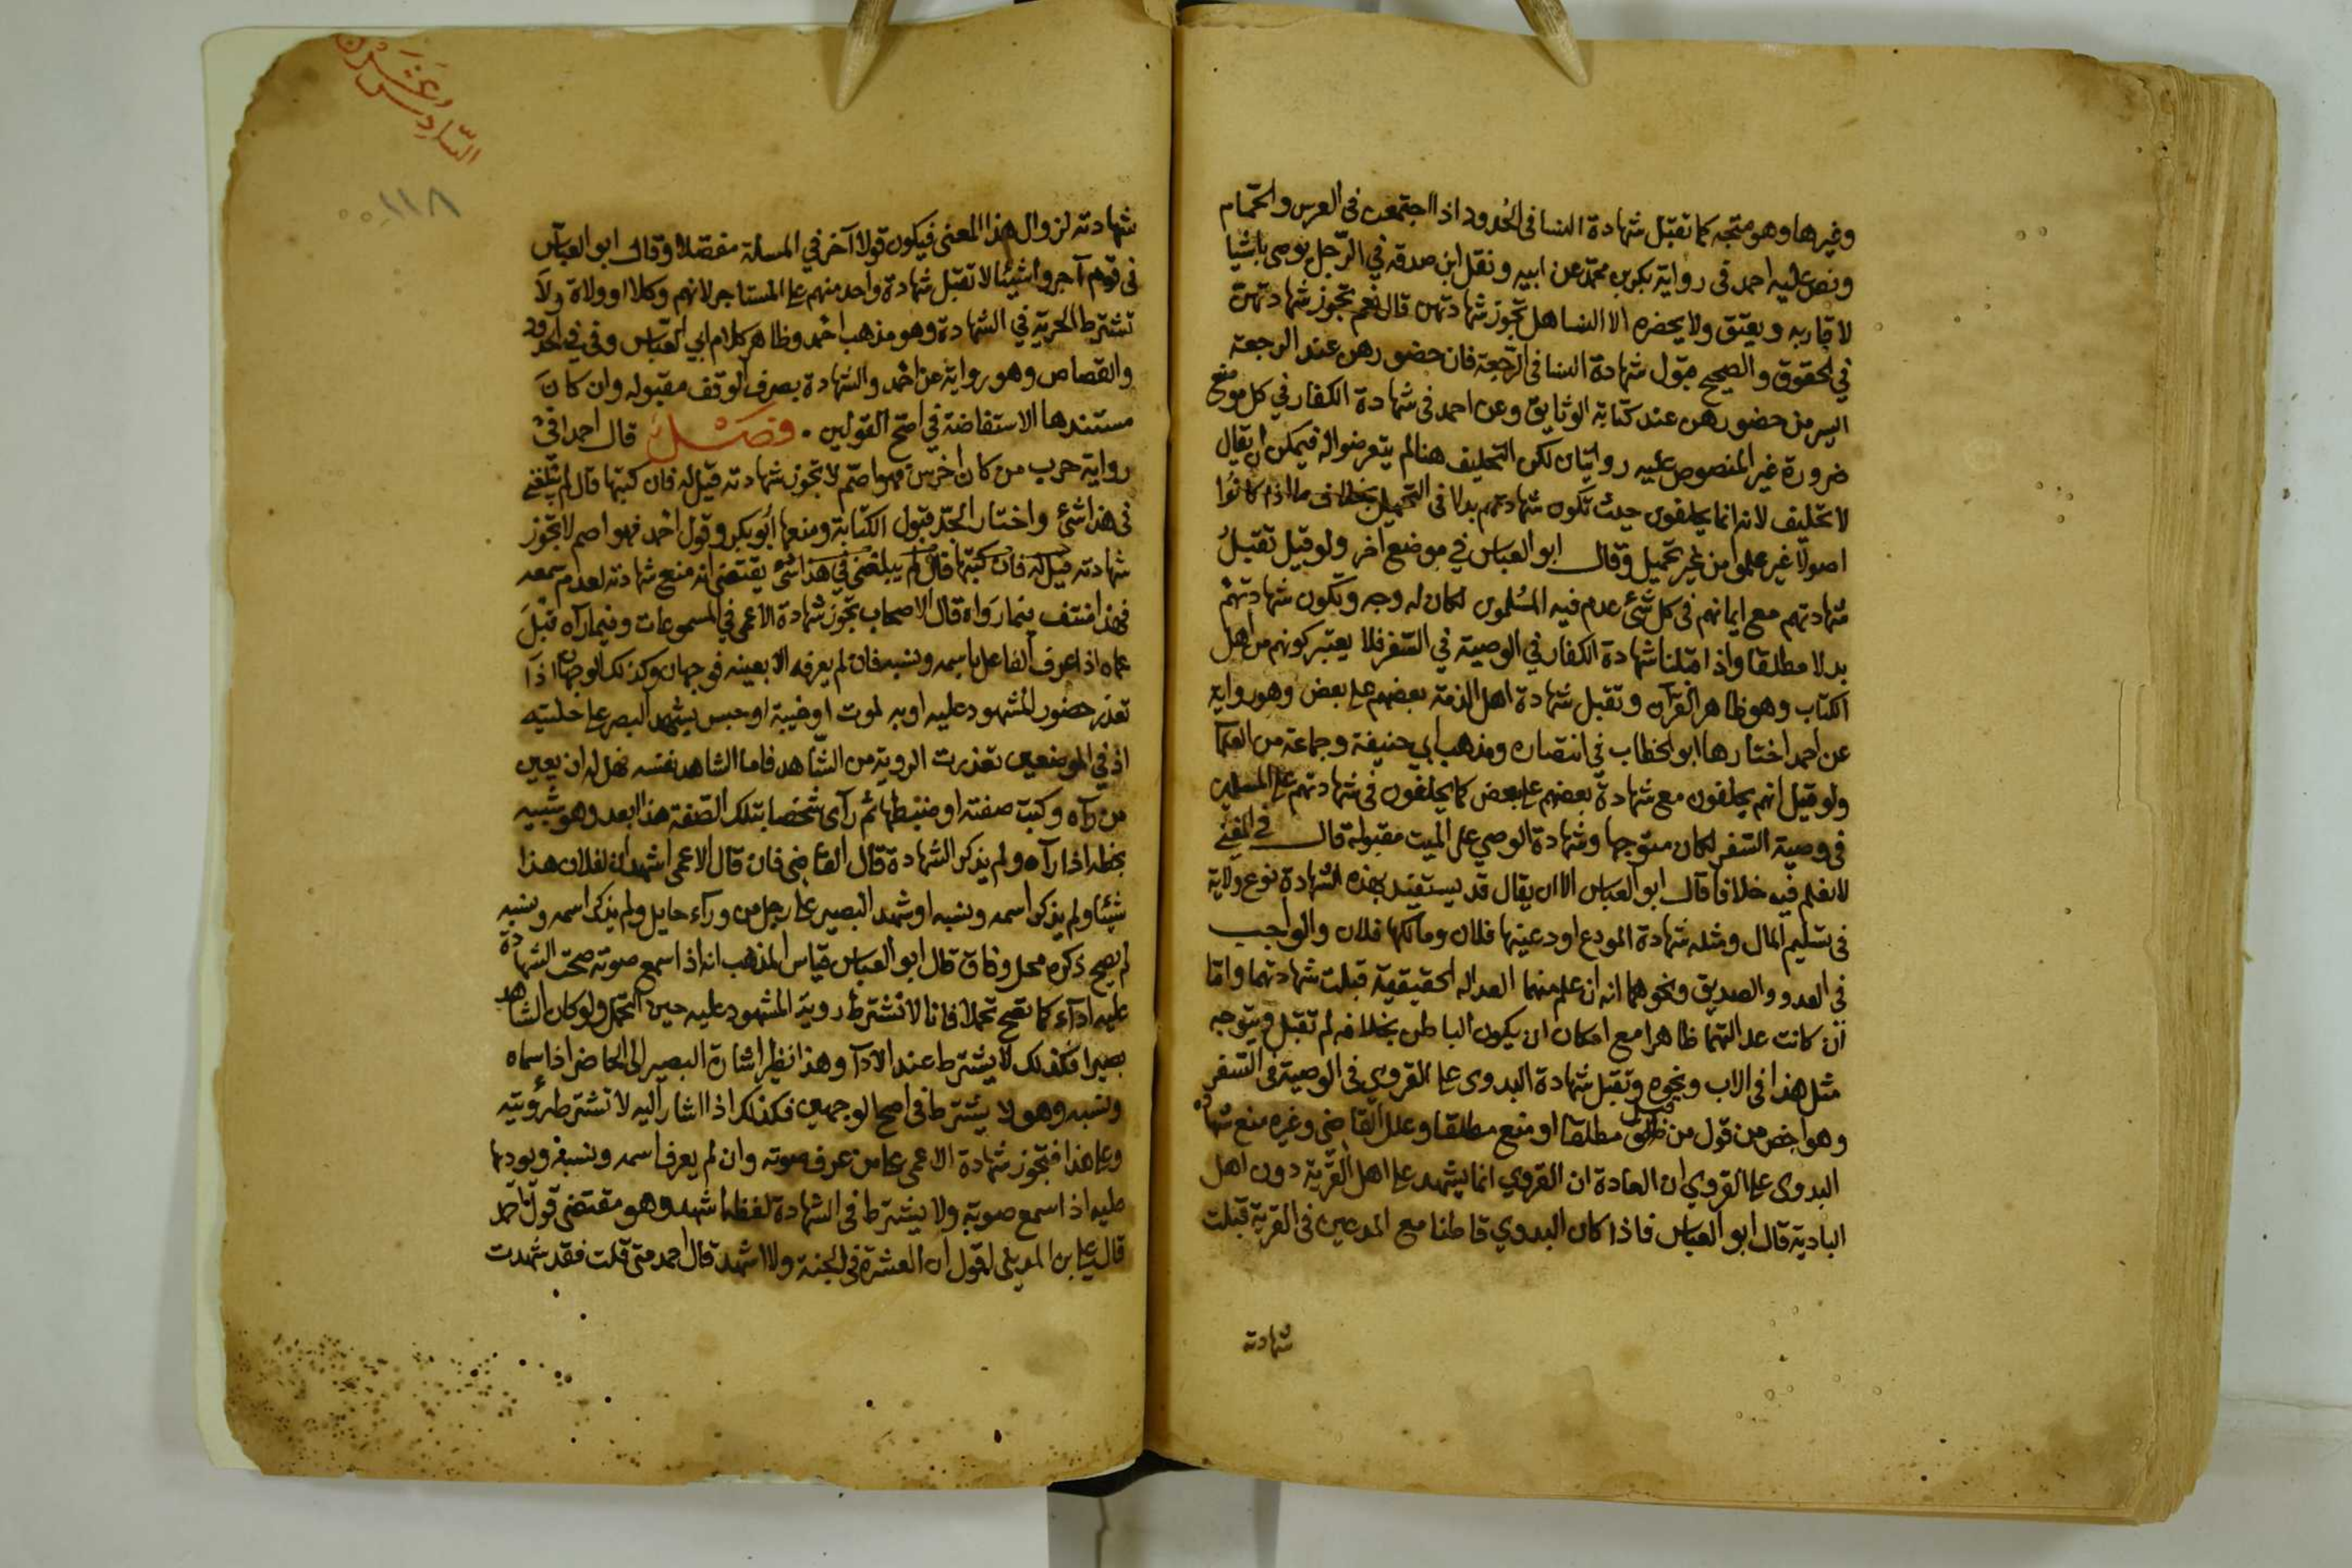 وغيرها وهو متجه كما تقبل شهادة النسا في الحدود اذا اجتمعن في العرس والحمام
ونص عليه احمد في رواية بكر بن محمد عن ابيه ونقل ابن صدقه في الرجل يوصي باشيا
لاقاربه ويعتق ولا يحضره الا النسا هل تجوز شهادتهن قال نعم تجوز شهادتهن
في الحقوق والصحيح قبول شهادة النسا في الرجعة فان حضورهن عند الرجعة
ايسر من حضورهن عند كتابة الوثايق وعن احمد في شهادة الكفار في كل موضع
ضرورة غير المنصوص عليه روايتان لكن التحليف هنا لم يتعرضوا له فيمكن ان يقال
لا تحليف لانه انما يحلفون حيث تكون شهادتهم بدلا في التحميل بخلاف ما اذا كانوا
اصولا غير علموا من غير تحميل وقال ابو العباس في موضع اخر ولو قيل تقبل
شهادتهم مع ايمانهم في كل شئ عدم فيه المسلمون لكان له وجه وتكون شهادتهم
بدلا مطلقا واذا قبلنا شهادة الكفار في الوصية في السفر فلا يعتبر كونهم من اهل
الكتاب وهو ظاهر القرآن وتقبل شهادة اهل الذمة بعضهم على بعض وهو رواية
عن احمد اختارها ابو الخطاب في انتصاره ومذهب ابي حنيفة وجماعة من العلمآ
ولو قيل انهم يحلفون مع شهادة بعضهم على بعض كما يحلفون في شهادتهم على المسلمين
في وصية السفر لكان متوجها وشهادة الوصي على الميت مقبولة قال في المغني
لا نعلم فيه خلافا قال ابو العباس الا ان يقال قد يستفيد بهذه الشهادة نوع ولاية
في تسليم المال ومثله شهادة المودع اودعنيها فلان ومالكها فلان والواجب
في العدو والصديق ونحوهما انه ان علم منهما العداله الحقيقية قبلت شهادتهما واما
ان كانت عدالتهما ظاهرا مع امكان ان يكون الباطن بخلافه لم تقبل ويتوجه
مثل هذا في الاب ونحوه وتقبل شهادة البدوى على القروي في الوصية في السفر
وهو اخص من قول من قبل مطلقا او منع مطلقا وعلل القاضي وغيره منع شهادة
البدوى على القروي ان العادة ان القروي انما يشهد على اهل القرية دون اهل
البادية قال ابو العباس فاذا كان البدوي قاطنا مع المدعين في القرية قبلت
شهادته
السادس وعشرون
١١٨
شهادته لزوال هذا المعنى فيكون قولا آخر في المسألة مفصلا وقال ابو العباس
في قوم آجروا شيئا لا تقبل شهادة واحد منهم على المستاجر لانهم وكلا او ولاة ولا
تشترط الحرية في الشهادة وهو مذهب احمد وظاهر كلام ابي العباس وفي في الحدود
والقصاص وهو رواية عن احمد والشهادة بصرف الوقف مقبوله وان كان
مستندها الاستفاضة في اصح القولين . فصل قال احمد في
رواية حرب من كان اخرس فهو اصم لا تجوز شهادته قيل له فان كتبها قال لم يبلغني
في هذا شئ واختار الجد قبول الكتابة ومنعها ابو بكر وقول احمد فهو اصم لا تجوز
شهادته قيل له فان كتبها قال لم يبلغني في هذا شئ يقتضي انه منع شهادته لعدم سمعه
فهذا منتف فيما رواه قال الاصحاب تجوز شهادة الاعمى في المسموعات وفيما رآه قبل
عماه اذا عرف الفاعل باسمه ونسبه فان لم يعرفه الا بعينه فوجهان وكذلك الوجهان اذا
تعذر حضور المشهود عليه او به لموت او غيبة او حبس يشهد البصير على حليته
اذ في الموضعين تعذرت الروية من الشاهد فاما الشاهد نفسه هل له ان يعين
من رآه وكتب صفته او ضبطها ثم رآى شخصا بتلك الصفة هذا ابعد وهو شبيه
بخطه اذا رآه ولم يذكر الشهادة قال القاضي فان قال الاعمى اشهد ان لفلان هذا
شيئا ولم يذكر اسمه ونسبه او شهد البصير على رجل من ورآء حايل ولم يذكر اسمه ونسبه
لم يصح ذكره محل وفاق قال ابو العباس قياس المذهب انه اذا سمع صوته صحت الشهادة
عليه ادآء كما تصح تحملا فانا لا نشترط روية المشهود عليه حين التحمل ولو كان الشاهد
بصيرا فكذلك لا يشترط عند الادآ وهذا نظير اشارة البصير الى الحاضر اذا سماه
ونسبه وهو لا يشترط في اصح الوجهين فكذلك اذا اشار اليه لا تشترط رؤيته
وعلى هذا فتجوز شهادة الاعمى على من عرف صوته وان لم يعرف اسمه ونسبه ويوديها
عليه اذا سمع صوته ولا يشترط في الشهادة لفظ اشهد وهو مقتضى قول احمد
قال علي ابن المديني اقول ان العشرة في الجنة ولا اشهد قال احمد متى قلت فقد شهدت